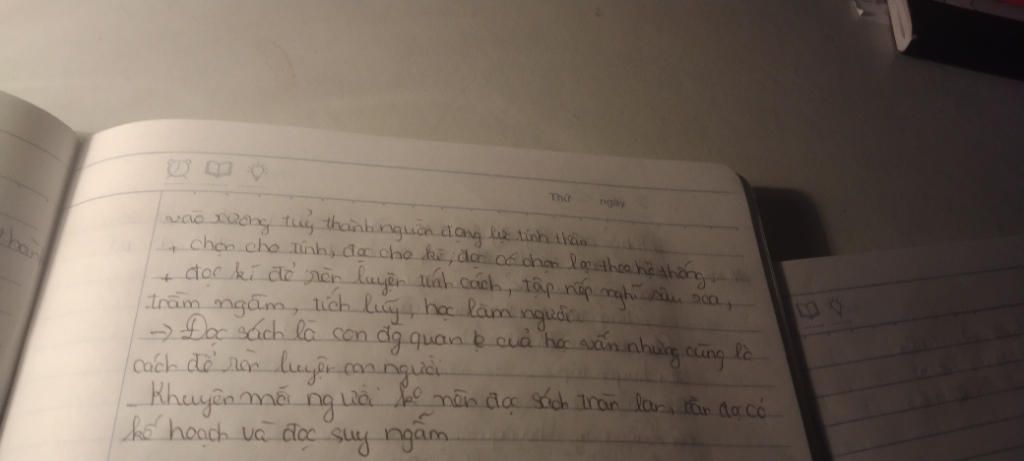 Thứ ngày
vào xương tuỷ thành nguồn động lực tinh thần
+ chọn cho tinh, đọc cho kĩ, đọc có chọn lọc theo hệ thống,
+ đọc kĩ để rèn luyện tính cách, tập nếp nghĩ sâu xa,
trầm ngâm, tích luỹ, học làm người.
→ Đọc sách là con đg quan tr của học vấn nhưng cũng là
cách để rèn luyện con người
_ Khuyên mỗi người ko nên đọc sách tràn lan, cần đọc có
kế hoạch và đọc suy ngẫm